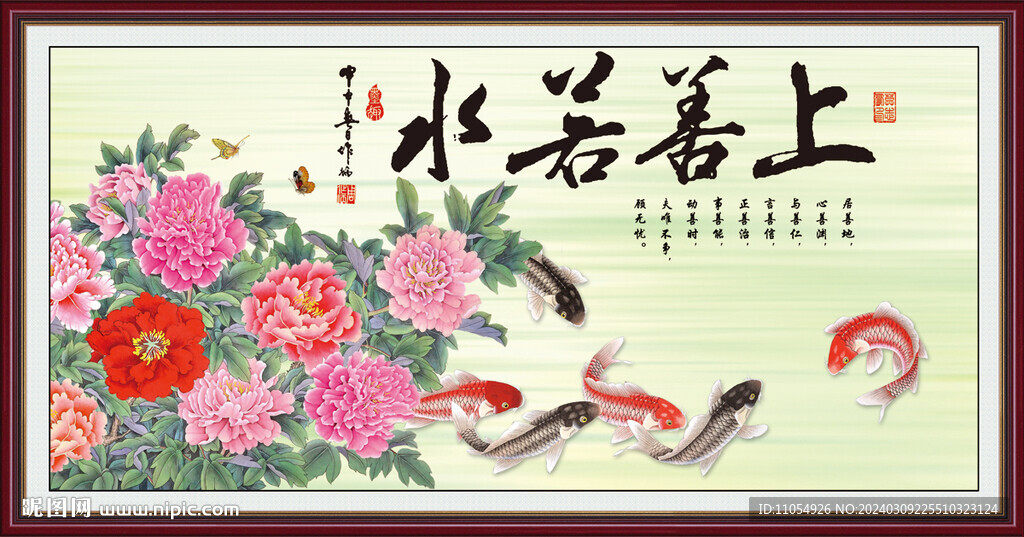 上善若水
居善地，
心善渊，
与善仁，
言善信，
正善治，
事善能，
动善时，
夫唯不争，
顾无忧。
昵图网 www.nipic.com
ID:11054926 NO:20240309225510323124